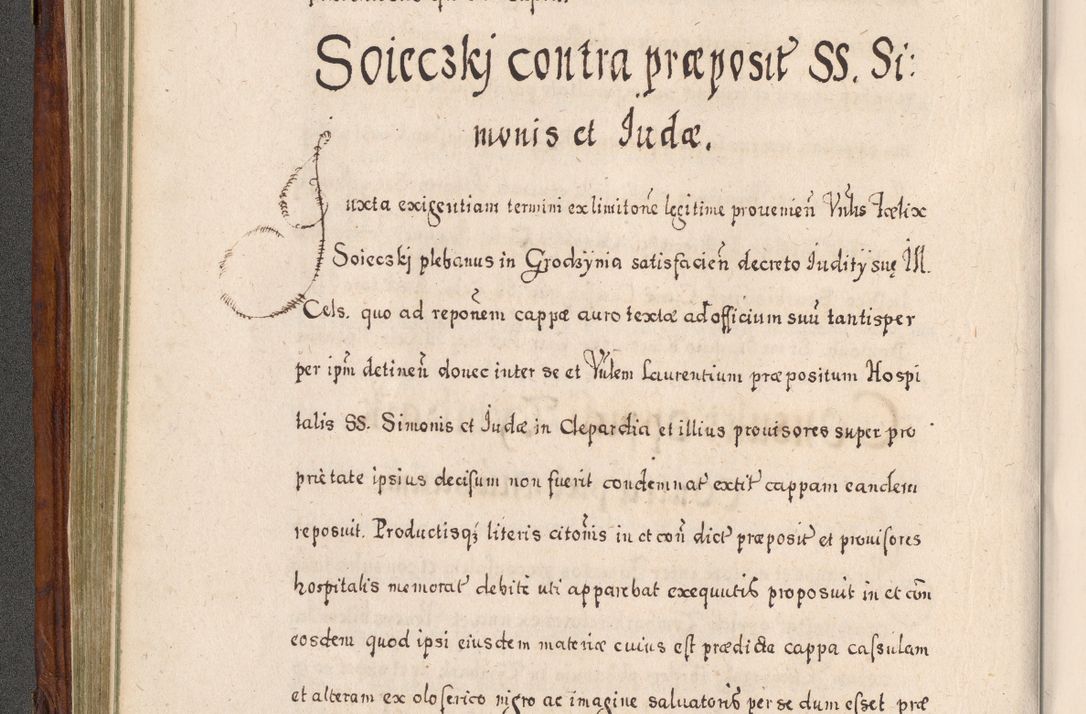 Soieczkj contra præposit SS. Si:
monis et Iudæ.
Iuxta exigentiam termini ex limitone legitime prouenien Vnlis Fœlix
Soieczkj plebanus in Grodzynia satisfacien decreto Iudity suę Ill.
Cels. quo ad reponem cappæ auro textæ ad officium suu tantisper
per ipm detinen donec inter se et Vnlem Laurentium præpositum Hospi
talis SS. Simonis et Iudæ in Clepardia et illius prouisores super pro
prietate ipsius decisum non fuerit condemnat extit cappam eandem
reposuit. Productisq literis citonis in et con dict præposit et prouisores
hospitalis memorat debite uti apparebat exequutis proposuit in et con
eosdem quod ipsi eiusdem materiæ cuius est prædicta cappa casulam
et alteram ex oloserico nigro ac imagine saluatoris per se dum esset præ